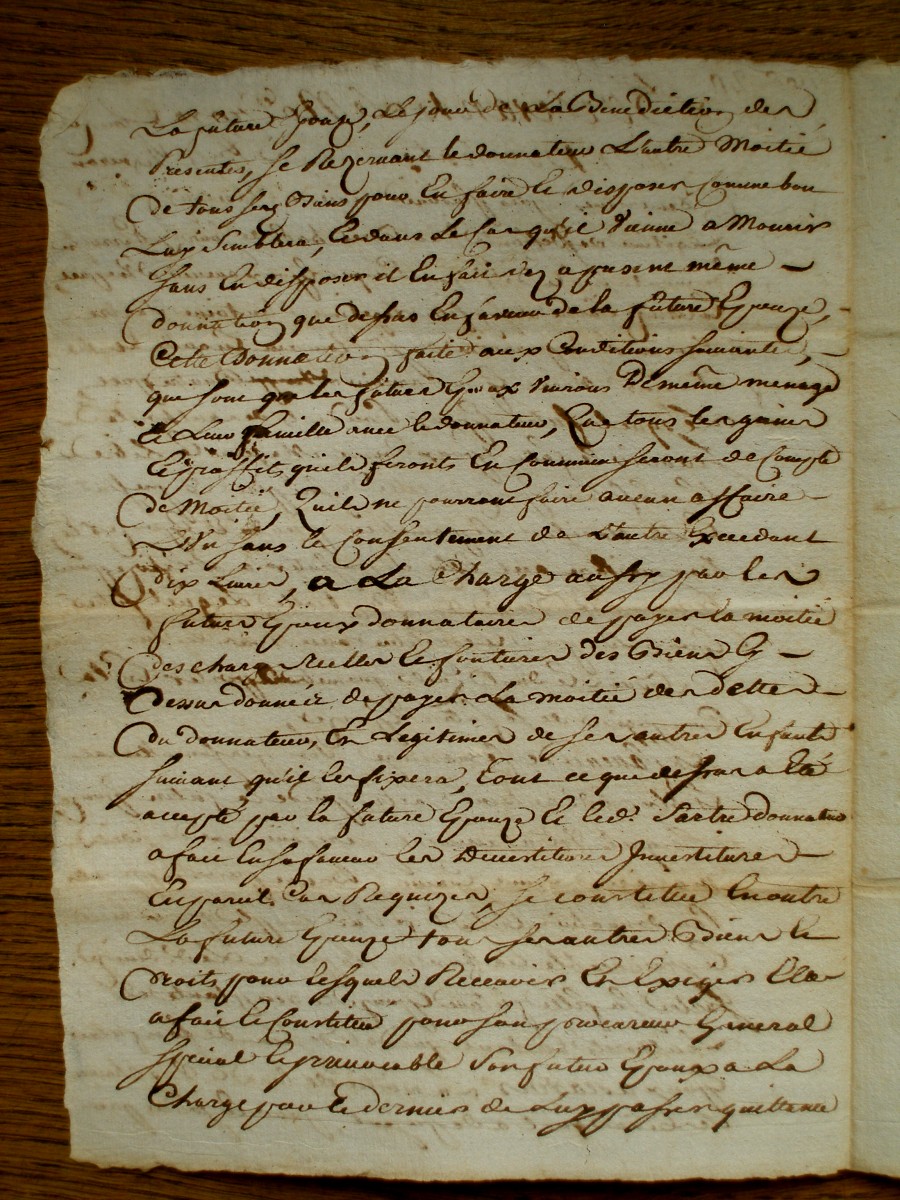 La future Epouze, Le jour de La Benediction des
Presentes, se Rezervant le donnateur L'autre Moitié
De tous ses Biens pour En faire Et disposer Comme bon
Luy Semblera, Et dans Le Cas qu'il Vienne a Mourir
Sans En disposer il En fait dez a present même —
donnation que dessus En faveur de la future Epouze,
Cette Donnation faite aux Conditions suivantes, —
que sont que les futurs Epoux Vivront De même menage
Et Leur famille avec le donnateur, Que tous les gains
Et proffits qu'ils feronts En Commun seront de Compte
De Moitié, Quils ne pourront faire aucun affaire —
L'Un sans le Consentement de L'autre Excedant
Dix Livres, a La Charge aussy par les
futurs Epoux donnataires de payer la moitié
des charg. réelles Et fontieres des Biens Cy —
Dessus donnés de payer La moitié des dettes —
Du donnateur, Et Legitimes de ses autres Enfants
suivant qu'il les fixera, tout ce que dessus a Eté
accepté par la future Epouze Et led.t Sartre donnateur
a fait En sa faveur les Devestitions Investitures —
En pareil Cas Requizes, se constitue En outre
La future Epouze tous ses autres Biens Et
Droits pour lesquels Recevoir Et Exiger Elle
a fait Et Constitué pour son procureur General
special Et irrevocable Son futur Epoux a La
Charge par Ce dernier de Luy passer quittance